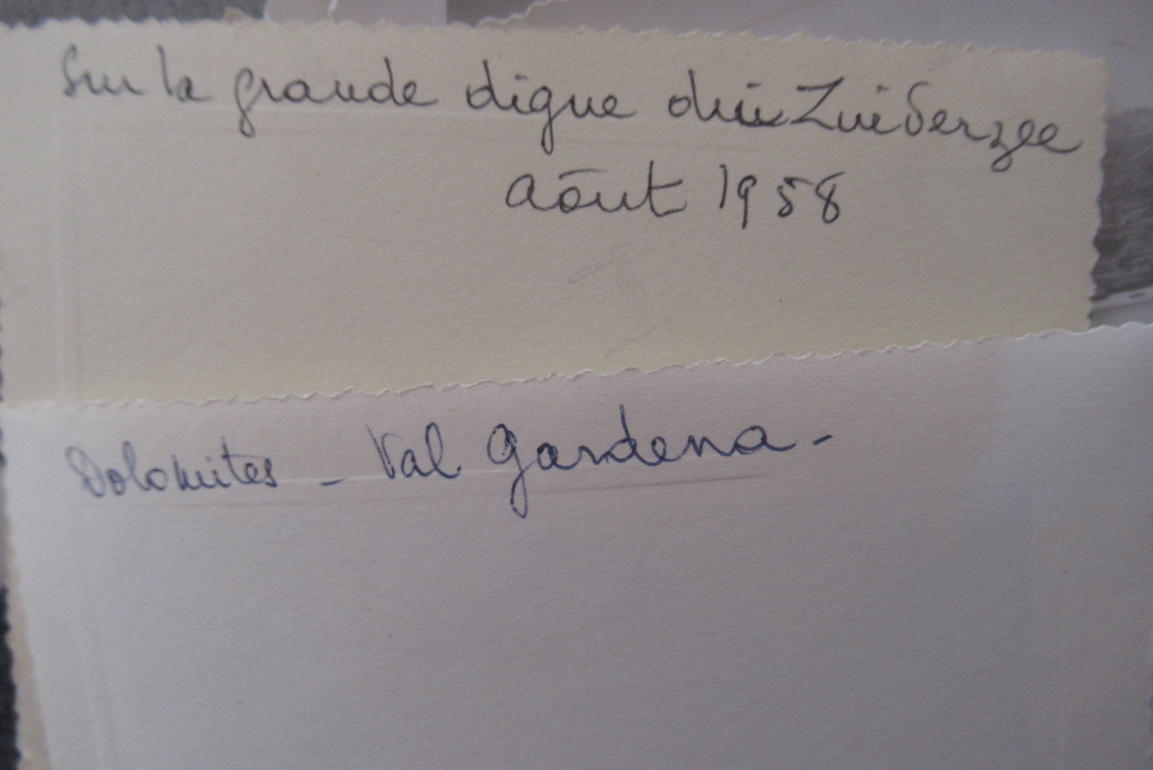 Sur la grande digue du Zuiderzee
Août 1958
Dolomites - Val Gardena -